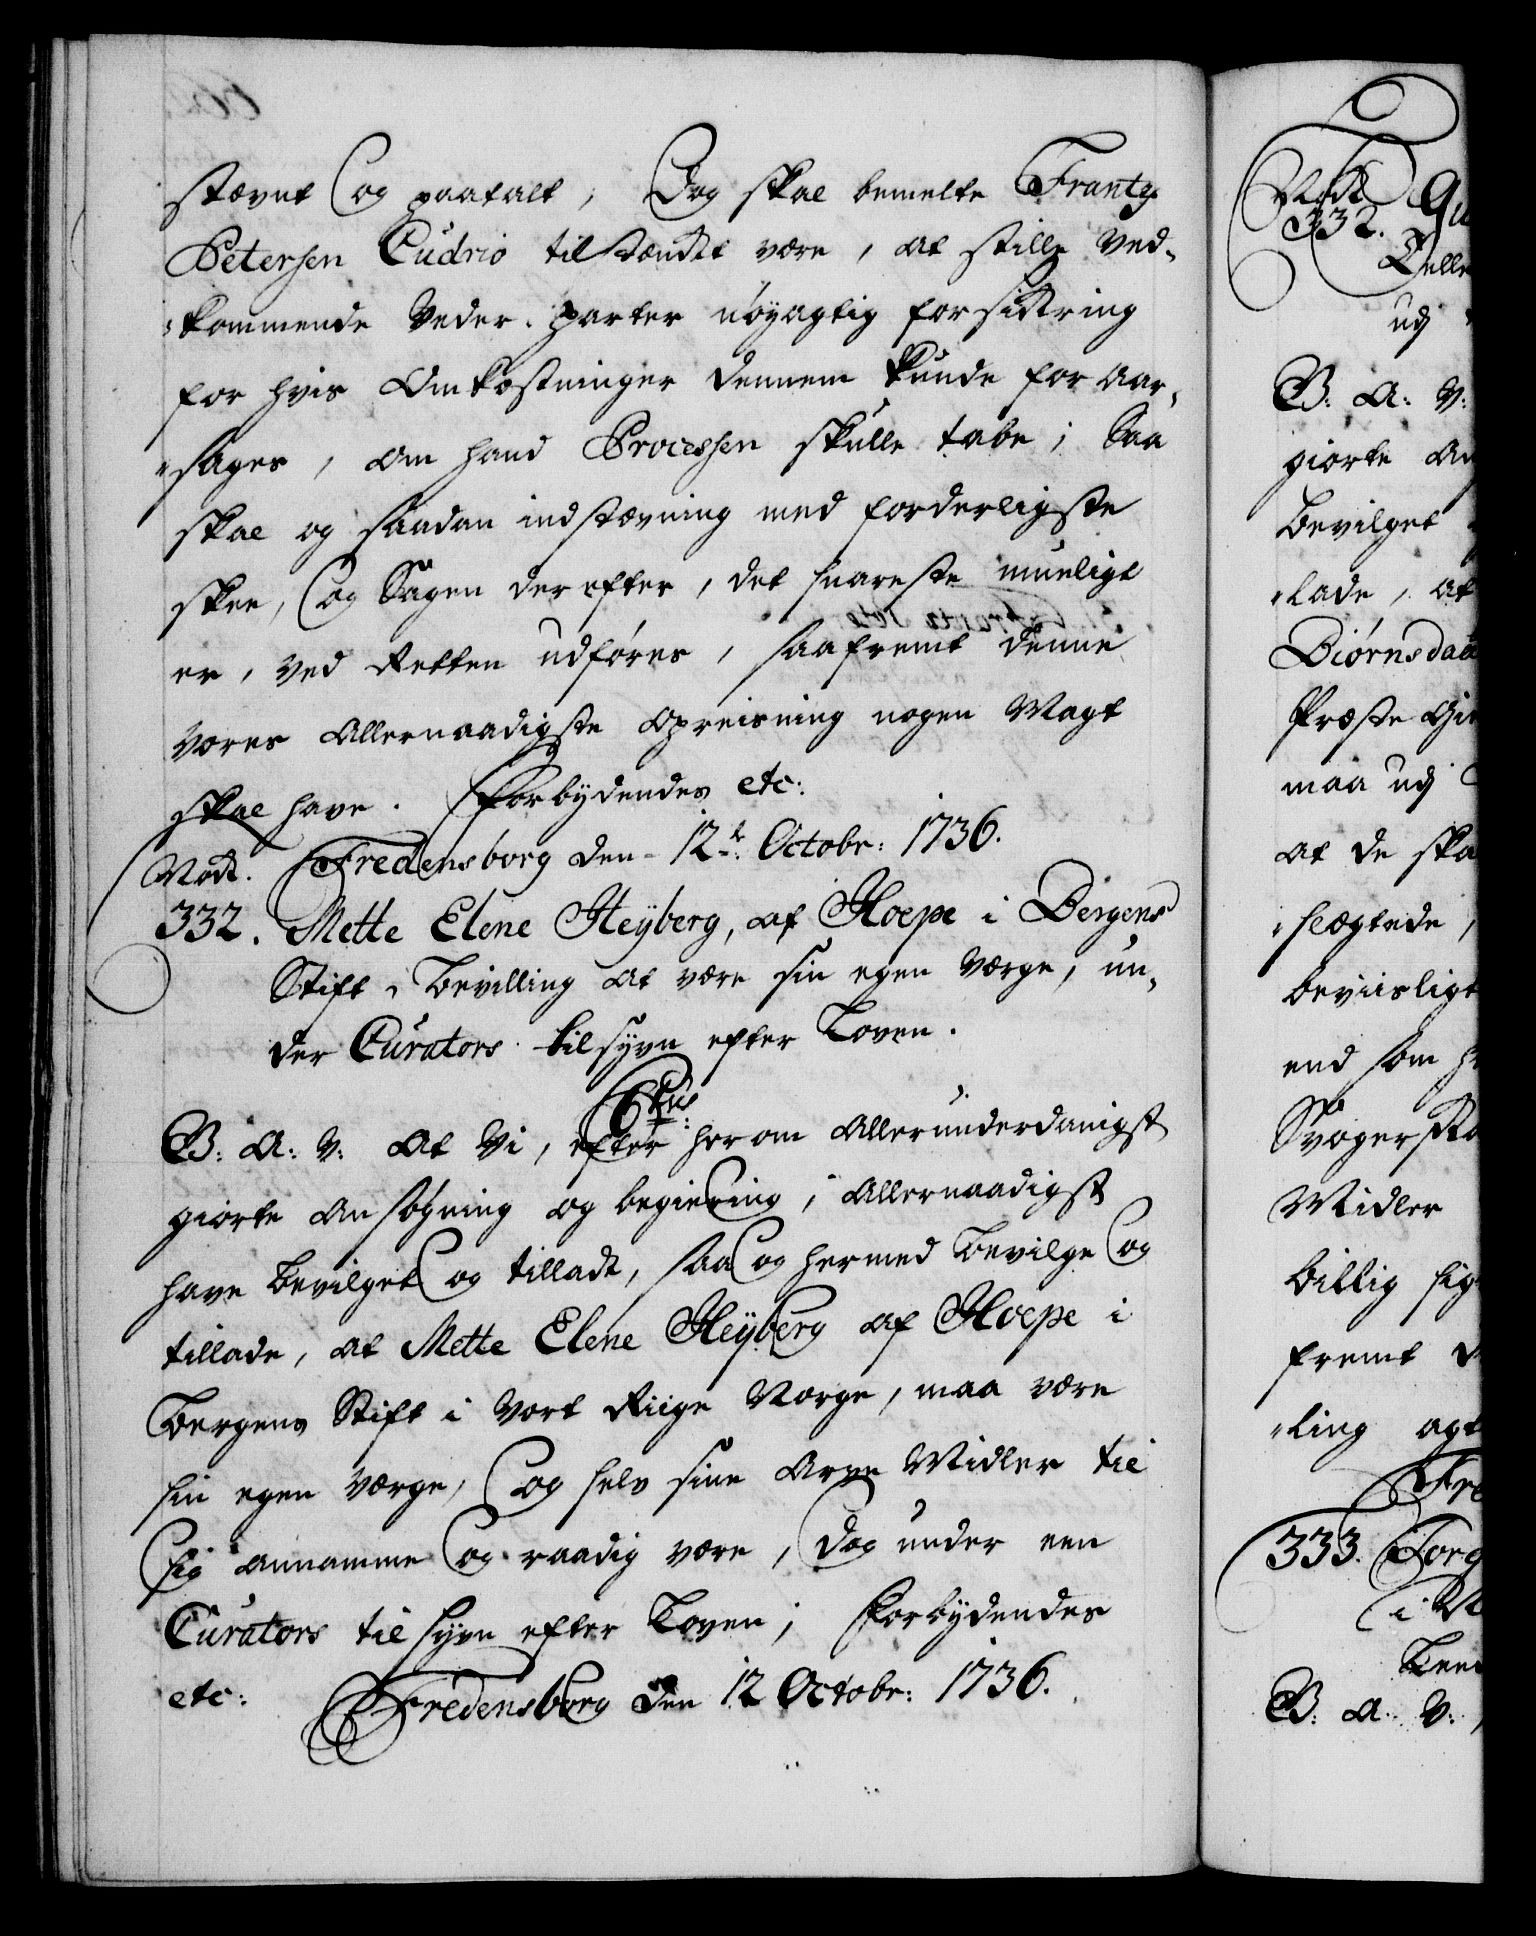 stævnt og paatalt, Dog skal bemelte Frantz
Petersen Cudrio tiltændt være, at stille ved-
kommende Veder-parter nøyagtig forsikring
for hvis Omkostninger dennem kunde foraar-
sages, om hand Processen skulle tabe; Saa
skal og saadan indstævning med forderligste
skee, og Sagen derefter, det snareste mueligt
er, ved Retten udføres, saafremt denne
vores Allernaadigste opreisning nogen Magt
skal have. Forbydendes etc:
Fredensborg den 12te Octobr: 1736.
Not.
332. Mette Elene Heÿberg, af Hoepe i Bergens
Stift, Bevilling at være sin egen værge, un-
der Curators tilsyn efter Loven.
B: A: V: At Vi, efter herom Allerunderdanigst
giorte ansøgning og begiering, Allernaadigst
have bevilget og tilladt, saa og hermed bevilge og
tillade, at Mette Elene Heÿberg af Hoepe i
Bergens Stift i Vort Riige Norge, maa være
sin egen værge, og selv sine Arve Midler til
sig annamme og raadig være, dog under een
Curators tilsyn efter Loven; Forbydendes
etc: Fredensborg den 12 Octobr: 1736.
Not.
332.
ud
B: A: V:
giorte An
bevilget
lade, at
Biørnsdat
Præste Gi
maa ud
at de ska
slægtede,
beviisligt
end som h
Svogersk
Midler
billig sig
fremt d
ling agt
Fre
333. Forg
i N
B: A: V: